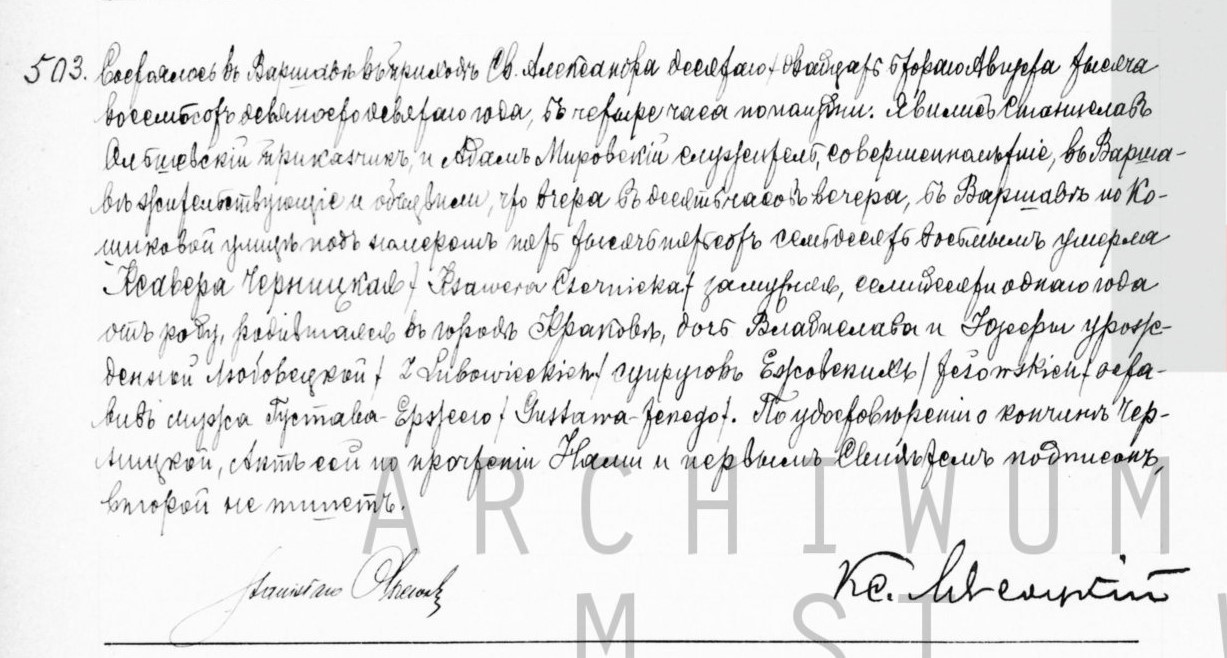 503. Состоялось въ Варшавѣ въ приходѣ Св. Александра десятаго / двадцать втораго Августа тысяча
восемьсотъ девяносто девятаго года, въ четыре часа пополудни. Явились Станиславъ
Ольшевскій приказчикъ, и Адамъ Мировскій служитель, совершеннолѣтніе, въ Варша-
вѣ жительствующіе и объявили, что вчера въ десять часовъ вечера, въ Варшавѣ по Ко-
шиковой улицѣ подъ номеромъ пять тысячъ пятьсотъ семьдесятъ восьмымъ умерла
Ксавера Черницкая / Ksawera Czernicka / замужняя, семидесяти однаго года
отъ роду, родившаяся въ городѣ Краковѣ, дочь Владислава и Юзефы урож-
денной Любовецкой / z Lubowieckich / супруговъ Ежовскихъ / Jeżowskich / оста-
вивъ мужа Густава- / Gustawa- По удостовѣреніи о кончинѣ Чер-
ницкой, Актъ сей по прочтеніи Нами и первымъ Свидѣтелемъ подписанъ,
второй не пишетъ.
Stanisław
Кс.
ARCHIWUM
M ST W